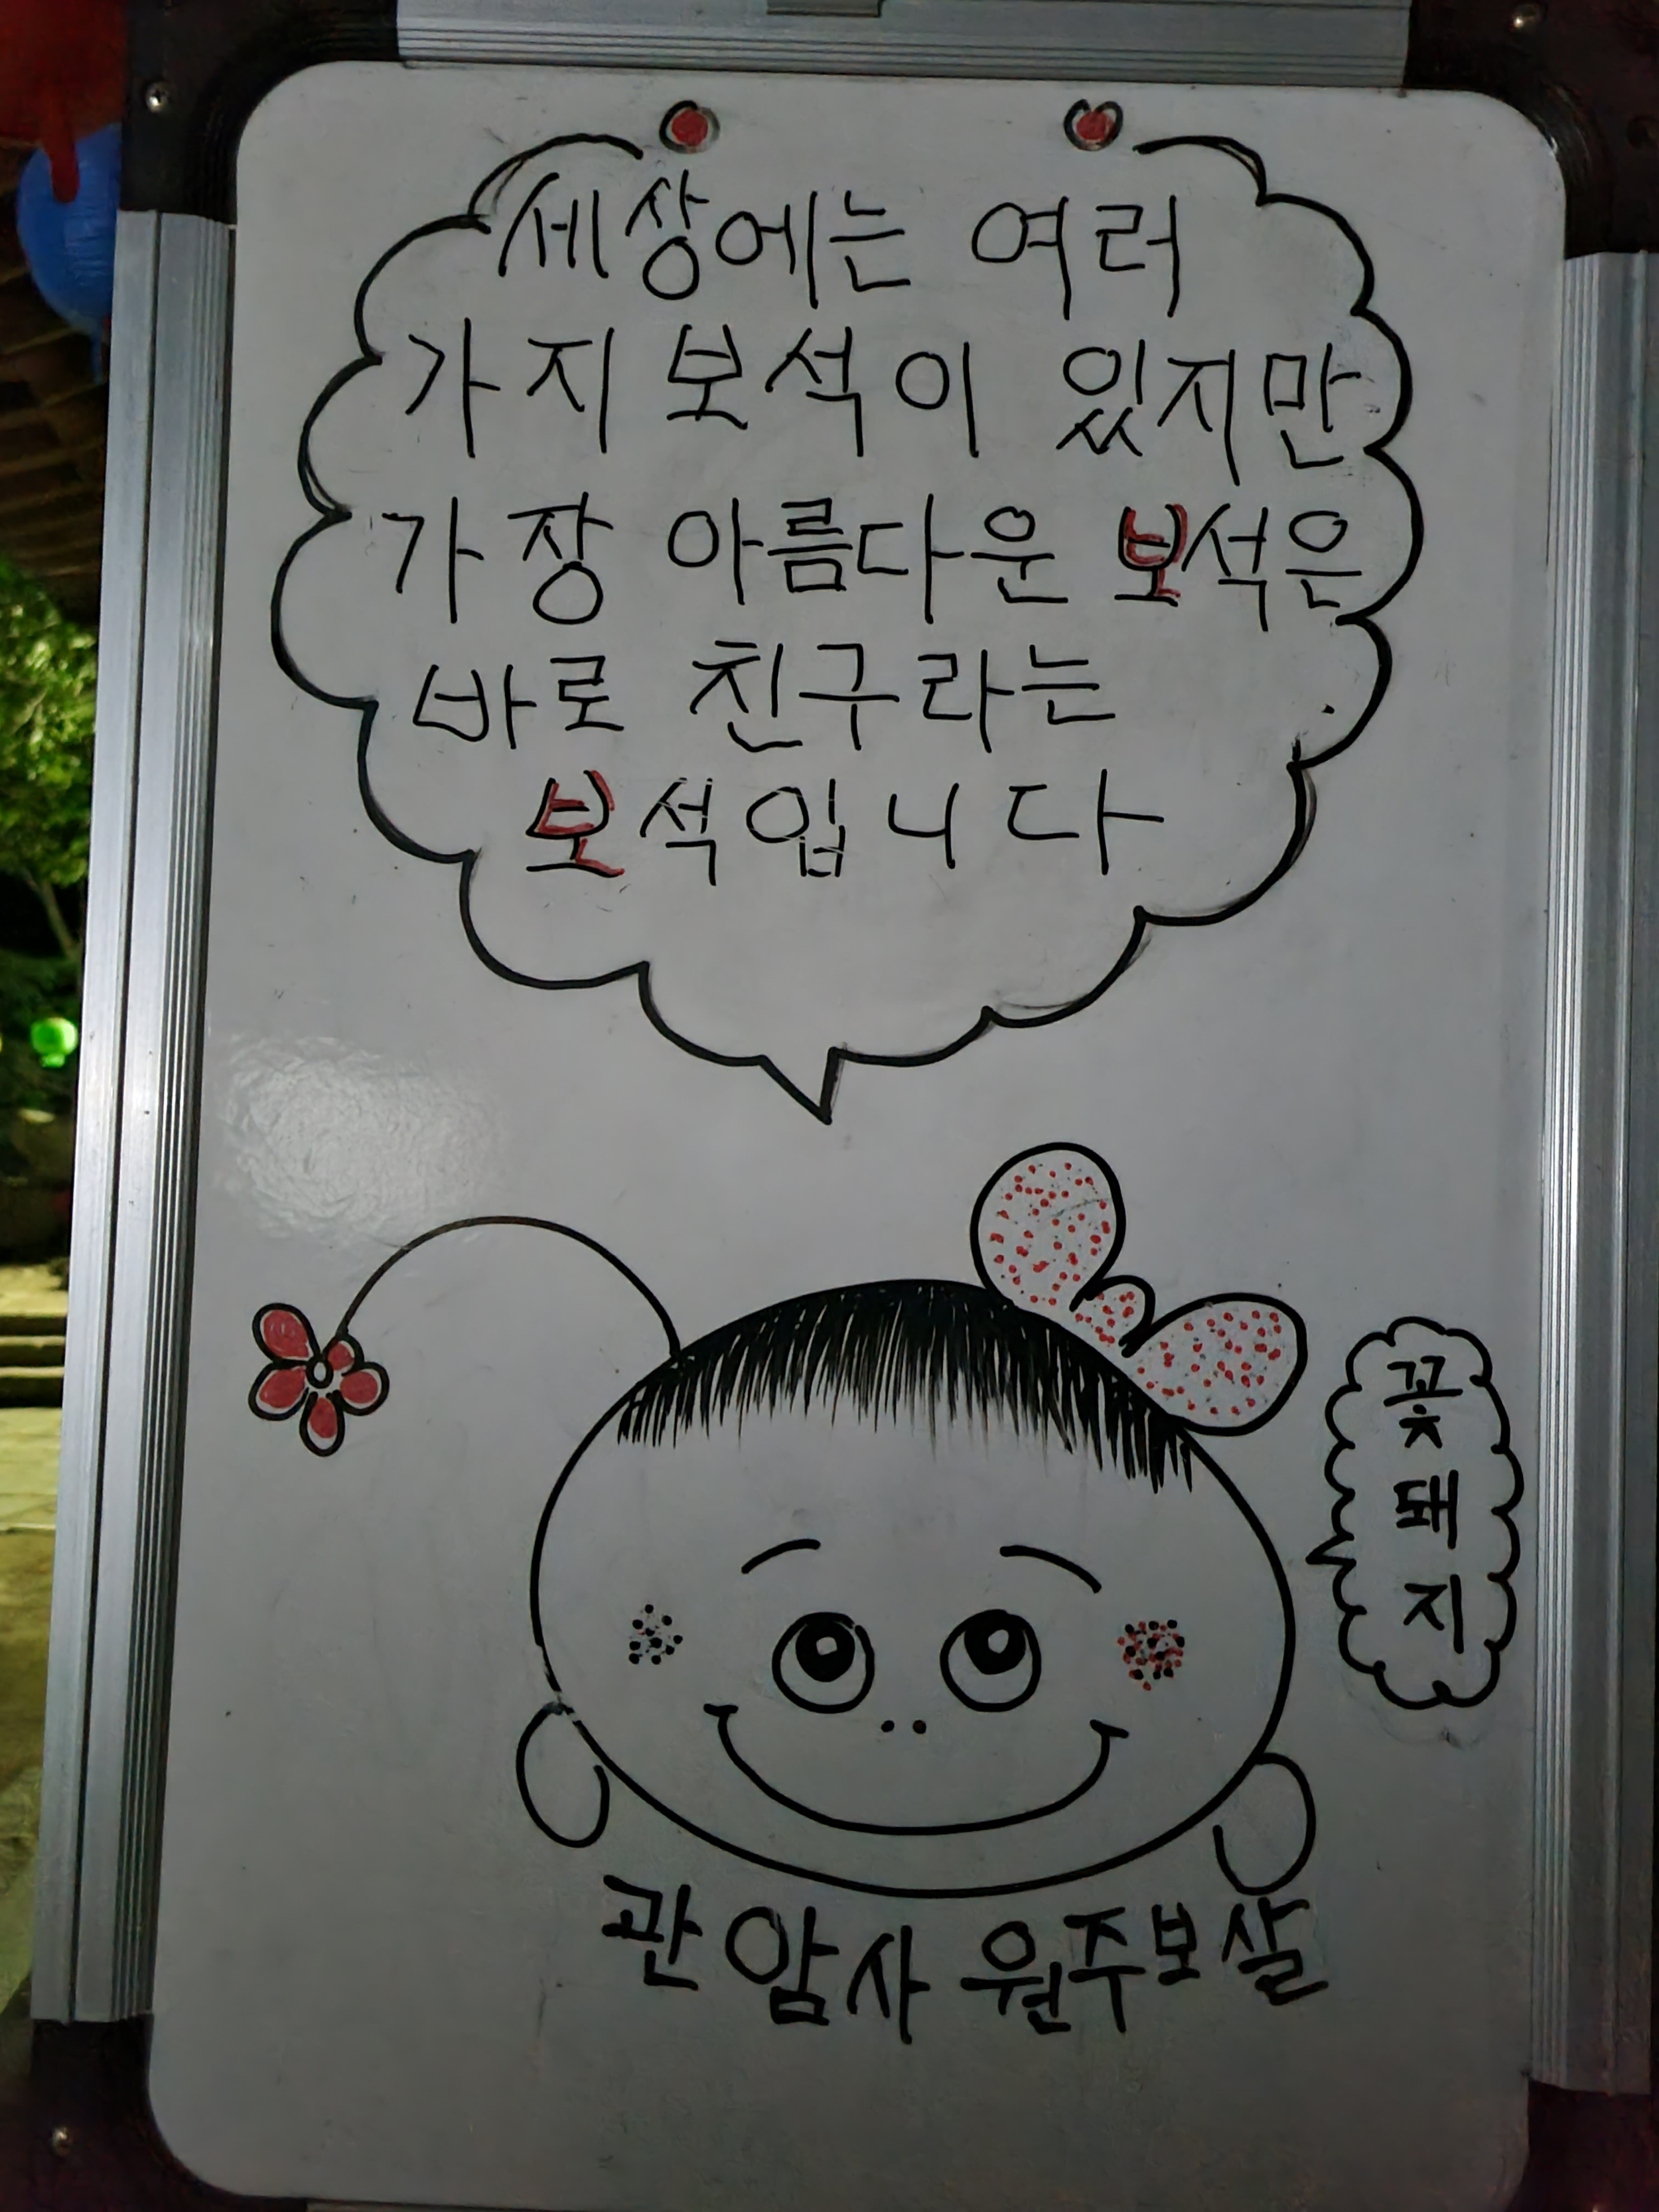 세상에는 여러
가지 보석이 있지만
가장 아름다운 보석은
바로 친구라는
보석입니다
꽃돼지
관암사 원주보살